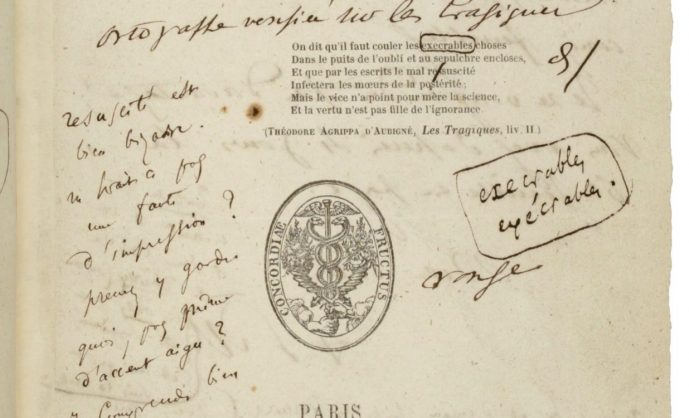 Ortographe verifiée sur les Tragiques
On dit qu'il faut couler les execrables choses
Dans le puits de l'oubli et au sepulchre encloses,
Et que par les escrits le mal resuscité
Infectera les mœurs de la postérité ;
Mais le vice n'a point pour mère la science,
Et la vertu n'est pas fille de l'ignorance.
(THÉODORE AGRIPPA D'AUBIGNÉ, Les Tragiques, liv. II)
resuscité est
bien bizarre.
ne serait-ce pas
une faute
d'impression ?
prenez y garde.
quoi, pas même
d'accent aigu ?
comprends bien
execrables
exécrables.
CONCORDIÆ FRUCTUS
PARIS